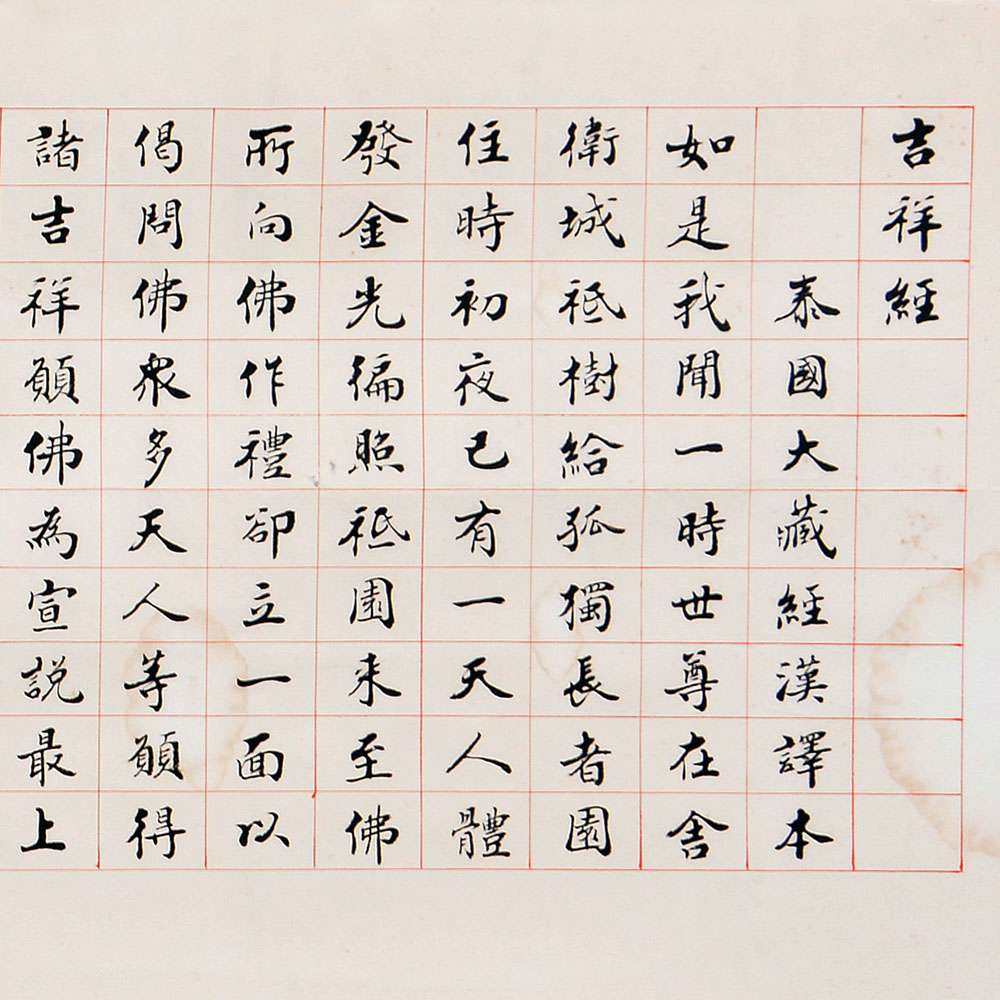 吉祥經
泰國大藏經漢譯本
如是我聞一時世尊在舍
衛城祇樹給孤獨長者園
住時初夜已有一天人體
發金光徧照祇園来至佛
所向佛作禮卻立一面以
偈問佛眾多天人等願得
諸吉祥願佛為宣説最上